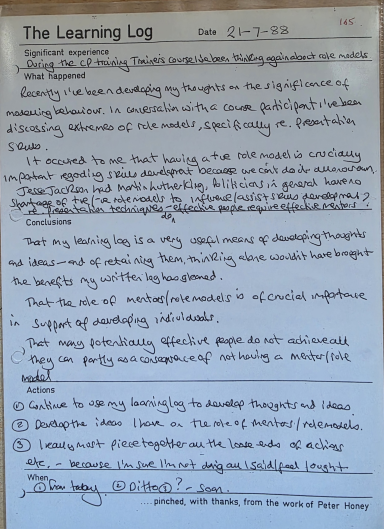 165
The Learning Log Date 21-7-88
Significant experience
During the CP training Trainers course I've been thinking again about role models
What happened
Recently I've been developing my thoughts on the significance of
modelling behaviour. In conversation with a course participant I've been
discussing extremes of role models, specifically re. presentation
skills.
It occurred to me that having a +ve role model is crucially
important regarding skills development because we can't do it all on our own.
Jesse Jackson had Martin Luther King, Politicians in general have no
shortage of +ve/-ve role models to influence/assist skills development?
re presentation techniques - effective people require effective mentors?
Conclusions
That my learning log is a very useful means of developing thoughts
and ideas - and of retaining them, thinking alone wouldn't have brought
the benefits my written log has gleaned.
That the role of mentors/role models is of crucial importance
in support of developing individuals.
That many potentially effective people do not achieve all
they can partly as a consequence of not having a mentor/role
model
Actions
① Continue to use my learning log to develop thoughts and ideas.
② Develop the ideas I have on the role of mentors/role models.
③ I really must piece together all the loose ends of actions
etc. - because I'm sure I'm not doing all I said/feel I ought
When
① from today. ② Ditto ③? - soon.
....pinched, with thanks, from the work of Peter Honey